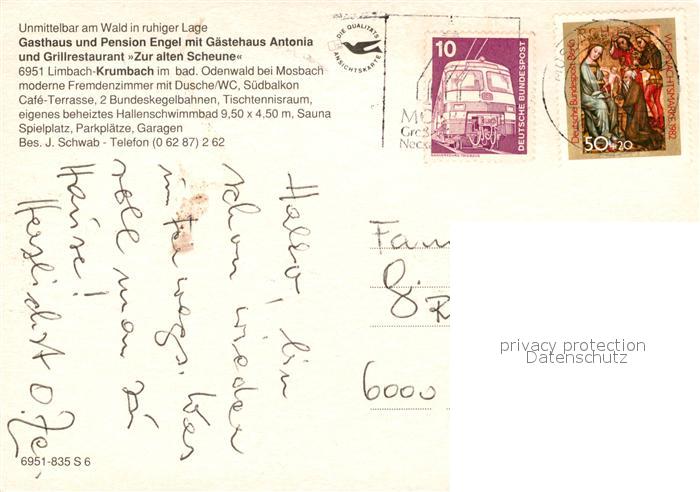 Unmittelbar am Wald in ruhiger Lage
Gasthaus und Pension Engel mit Gästehaus Antonia
und Grillrestaurant »Zur alten Scheune«
6951 Limbach-Krumbach im bad. Odenwald bei Mosbach
moderne Fremdenzimmer mit Dusche/WC, Südbalkon
Café-Terrasse, 2 Bundeskegelbahnen, Tischtennisraum,
eigenes beheiztes Hallenschwimmbad 9,50 x 4,50 m, Sauna
Spielplatz, Parkplätze, Garagen
Bes. J. Schwab - Telefon (0 62 87) 2 62
DIE QUALITÄTS
ANSICHTSKARTE
10
DEUTSCHE BUNDESPOST
MO
Groß
Neck
Deutsche Bundespost Berlin
WEIHNACHTSMARKE 1982
50+20
Hallo, bin
schon wieder
unterwegs. Was
soll man zu
Hause!
Herzlichst
Fam
6000
privacy protection
Datenschutz
6951-835 S 6